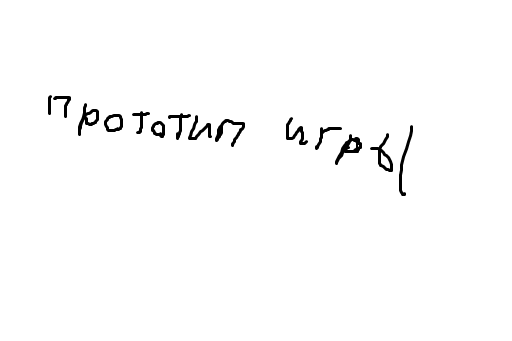 прототип игры